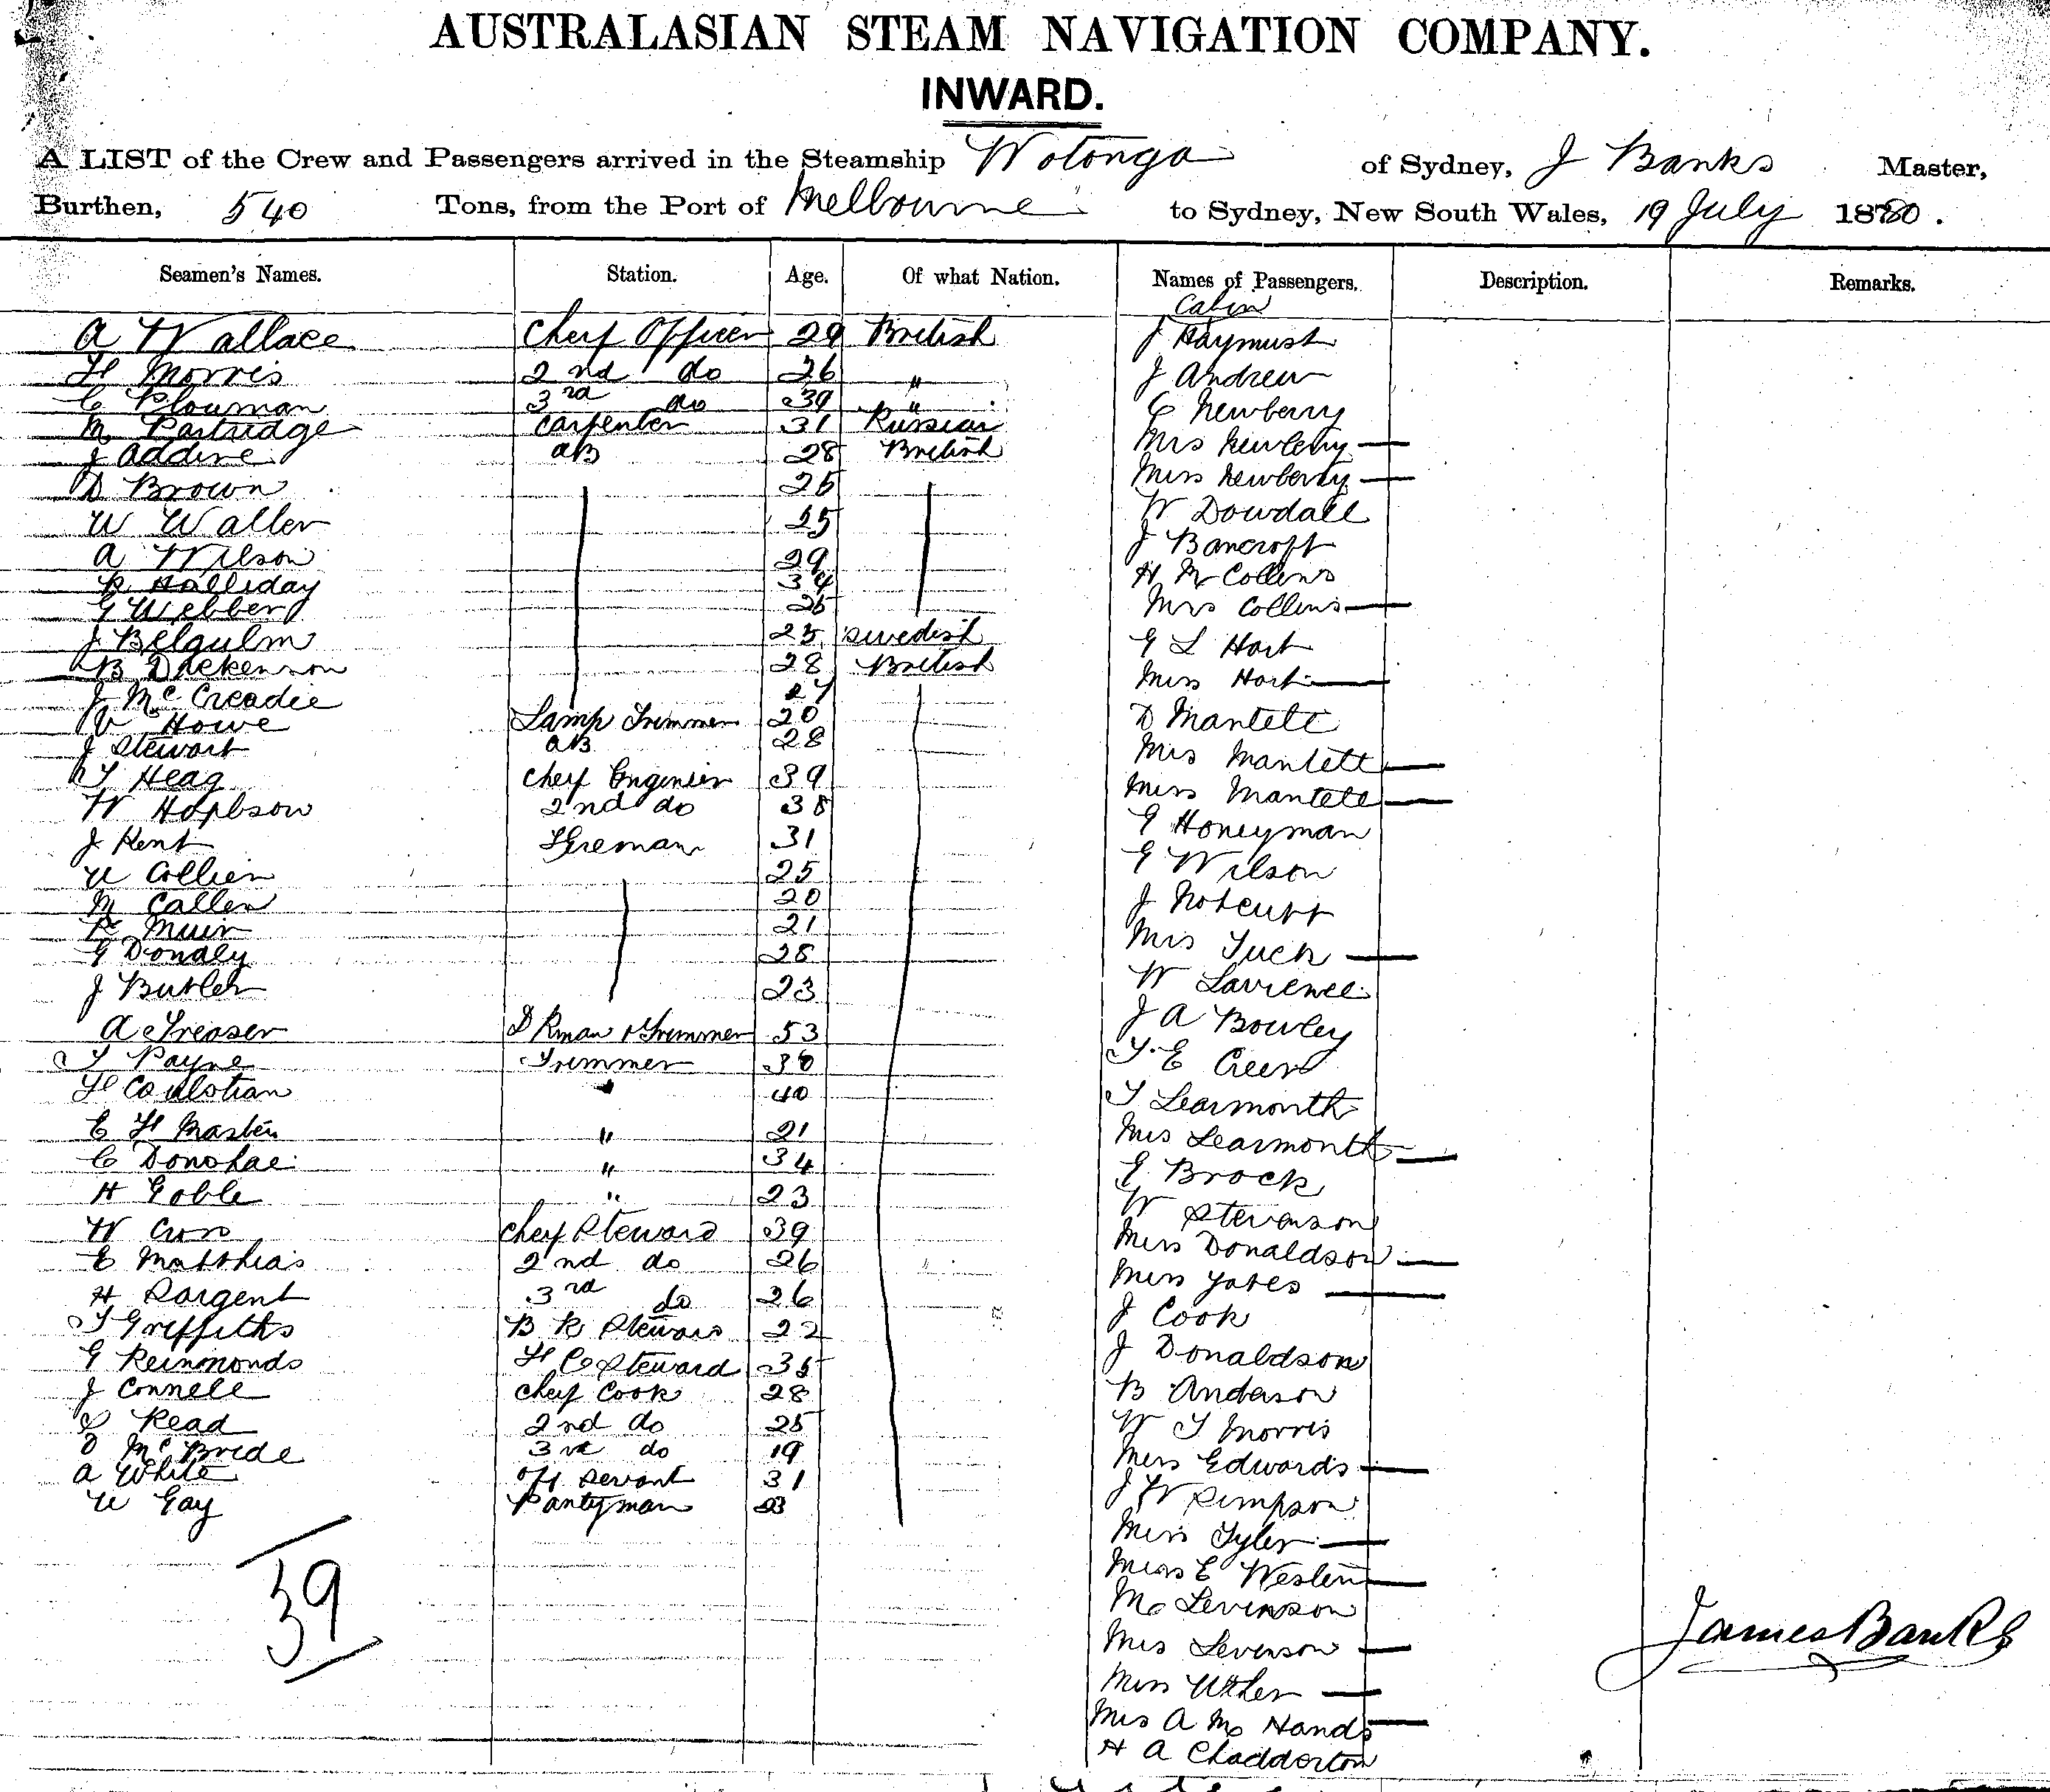 AUSTRALASIAN STEAM NAVIGATION COMPANY.
INWARD.
A LIST of the Crew and Passengers arrived in the Steamship Wotonga of Sydney, J Banks Master,
Burthen, 540 Tons, from the Port of Melbourne to Sydney, New South Wales, 19 July 1880.
Seamen's Names. Station. Age. Of what Nation. Names of Passengers. Description. Remarks.
Cabin
A Wallace Chief Officer 29 British J Haymust
H Morris 2nd do 26 " J Andrew
C Plowman 3rd do 39 " C Newberry
M Partridge Carpenter 31 Russian Mrs Newberry —
J Addine AB 28 British Miss Newberry —
D Brown 25 W Dowdall
W Waller 25 J Bancroft
A Wilson 29 H M Collins
R Halliday 34 Mrs Collins —
G Webber 25 G L Hart
J Belgulm 25 Swedish Miss Hart —
B Dickenson 28 British D Mantell
J McCreadie 27 Mrs Mantell —
V Howe Lamp Trimmer 20 Miss Mantell —
J Stewart AB 28 G Honeyman
T Heag Chief Engineer 39 G Wilson
W Hopbson 2nd do 38 J Notcutt
J Kent Fireman 31 Mrs Tuck —
W Collier 25 W Lawrence
M Callen 20 J A Bowley
R Muir 21 T. E Creer
G Donaly 28 T Learmonth
J Butler 23 Mrs Learmonth —
A Treaser D Kman & Trimmer 53 G Brock
T Payne Trimmer 30 W Stevenson
H Coulstian " 40 Miss Donaldson —
C H Masten " 21 Miss Yates —
C Donohae " 34 J Cook
H Goble " 23 J Donaldson
W Cross Chief Steward 39 B Anderson
E Matthias 2nd do 26 W T Morris
H Sargent 3rd do 26 Miss Edwards —
T Griffiths B R Steward 22 J W Simpson
G Reinmonds F C Steward 35 Miss Tyler —
J Connell Chief Cook 28 Miss E Westen —
Read 2nd do 25 M Levinson
D McBride 3rd do 19 Mrs Levenson —
A White Off Servant 31 Miss Uther —
W Gay Pantyman 23 Mrs A M Hands —
H A Chadderton
39
James Banks